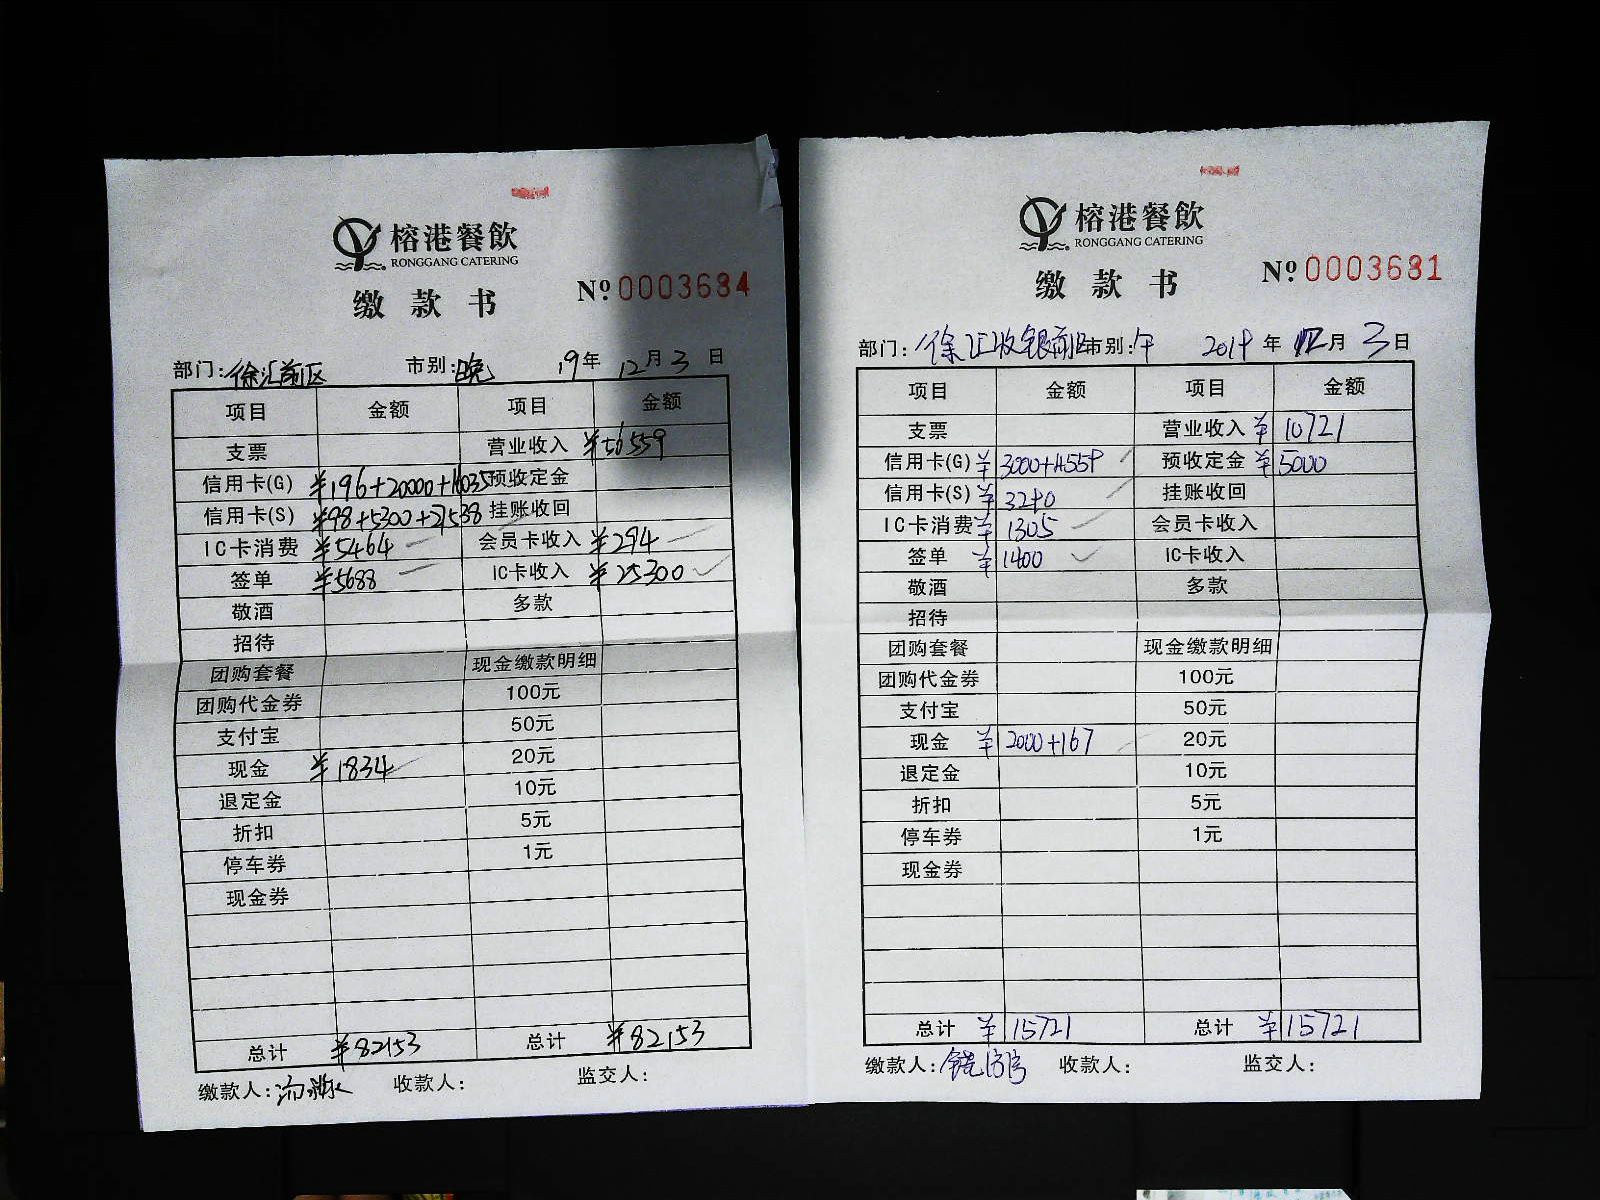 榕港餐飲
RONGGANG CATERING
缴款书
№ 0003684
部门: 徐汇前区 市别: 晚 19年 12月 3日
项目 金额 项目 金额
支票 营业收入 ¥56559
信用卡(G) ¥196+20000+16035 预收定金
信用卡(S) ¥98+5300+27538 挂账收回
IC卡消费 ¥5464 会员卡收入 ¥294
签单 ¥5688 IC卡收入 ¥25300
敬酒 多款
招待
团购套餐 现金缴款明细
团购代金券 100元
支付宝 50元
现金 ¥1834 20元
退定金 10元
折扣 5元
停车券 1元
现金券
总计 ¥82153 总计 ¥82153
缴款人: 收款人: 监交人:
榕港餐飲
RONGGANG CATERING
缴款书
№ 0003681
部门: 徐汇收银前区 市别: 午 2019年 12月 3日
项目 金额 项目 金额
支票 营业收入 ¥10721
信用卡(G) ¥3000+4559 预收定金 ¥5000
信用卡(S) ¥3290 挂账收回
IC卡消费 ¥1305 会员卡收入
签单 ¥1400 IC卡收入
敬酒 多款
招待
团购套餐 现金缴款明细
团购代金券 100元
支付宝 50元
现金 ¥2000+167 20元
退定金 10元
折扣 5元
停车券 1元
现金券
总计 ¥15721 总计 ¥15721
缴款人: 收款人: 监交人: